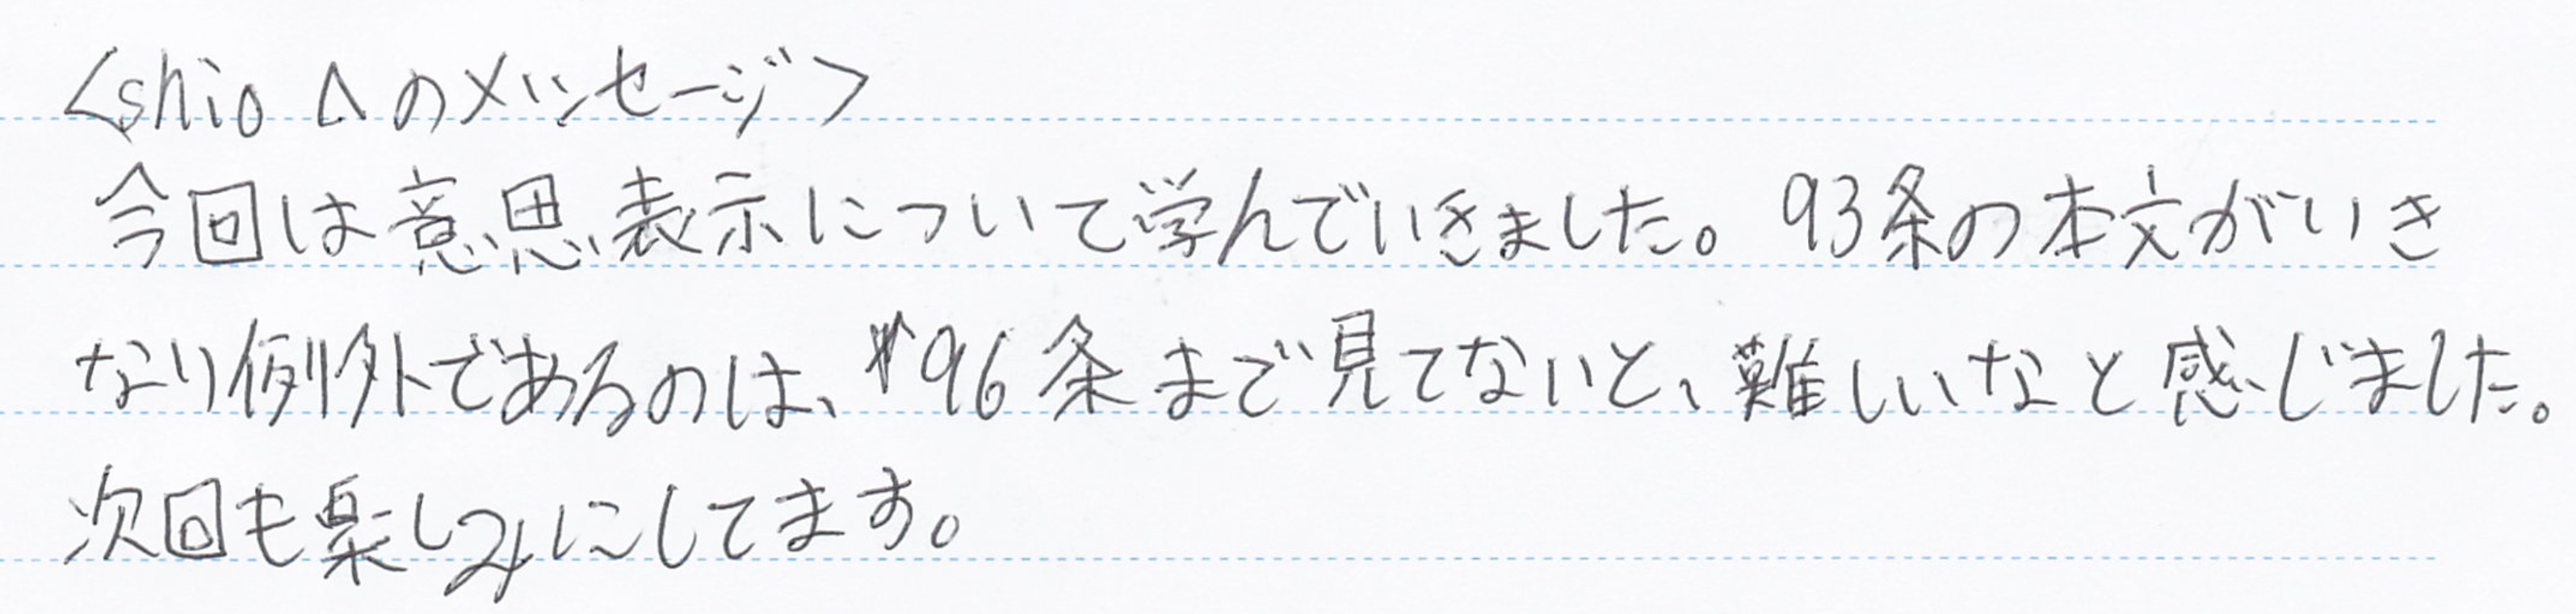 <shio へのメッセージ>
今回は意思表示について学んでいきました。93条の本文がいき
なり例外であるのは、96条まで見てないと、難しいなと感じました。
次回も楽しみにしてます。